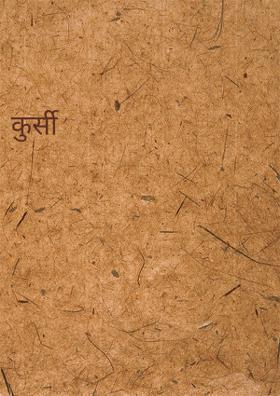 कुर्सी